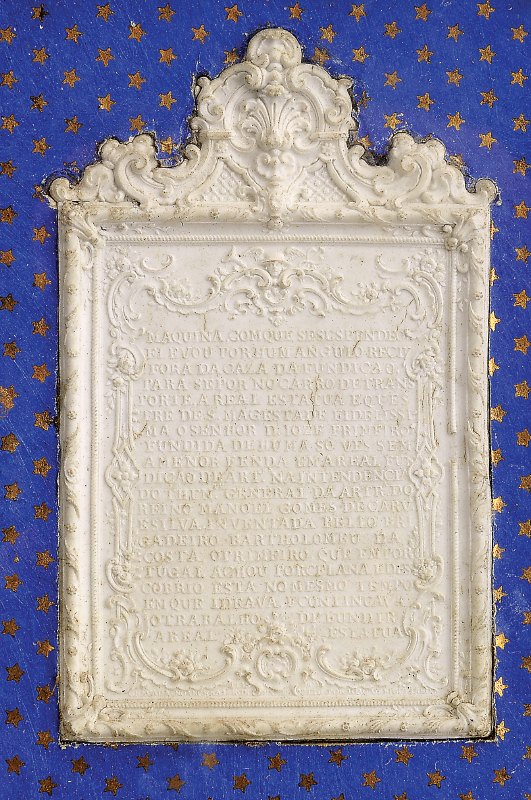 MAQUINA, COM QUE SE SUSPENDEO
E ELEVOU POR HUM ANGULO RECTO
FORA DA CAZA DA FUNDICAO,
PARA SE POR NO CARRO DE TRAN
PORTE A REAL ESTATUA EQUES
TRE DE S. MAGESTADE FIDELISSI
MA O SENHOR D. JOZE PRIMEIRO
FUNDIDA DE HUMA SO VES SEM
A MENOR
DICAO DE ART. NA INTENDENCIA
DO THEN. GENERAL DA ART. DO
REINO MANOEL GOMES DE CARV.
E SILVA, INVENTADA PELLO BRI
GADEIRO BARTHOLOMEU DA
COSTA O PRIMEIRO QUE EM POR
TUGAL ACHOU PORCELANA, E DES
COBRIO ESTA NO MESMO TEMPO
EM QUE
O TRABALHO DE FUNDIR
A REAL ESTATUA